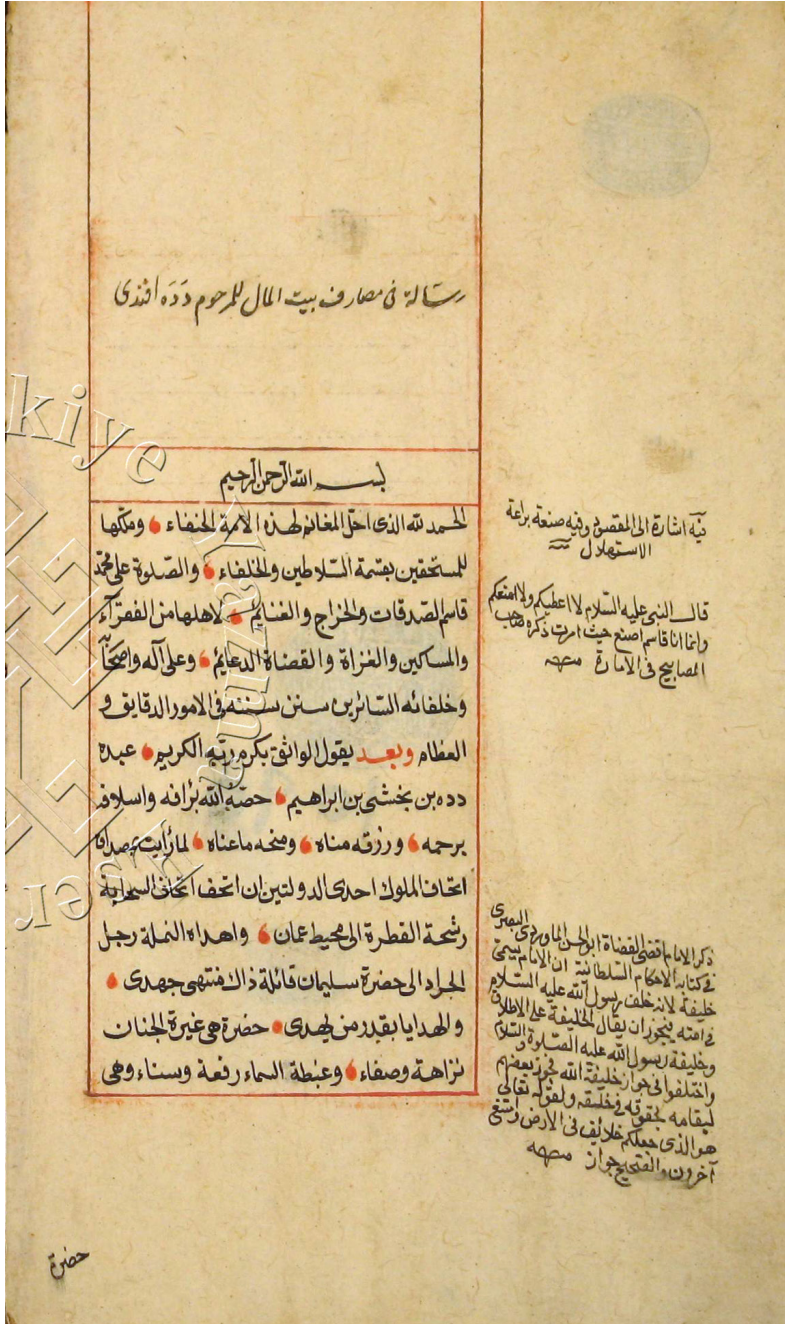 رسالة فى مصارف بيت المال للمرحوم دَدَه افندى
بسم الله الرحمن الرحيم
الحمد لله الذى احل المغانم لهذه الامة الحنفاء وملكها
للمستحقين بقسمة السلاطين والخلفاء والصلوة على محمد
قاسم الصدقات والخراج والغنايم لاهلها من الفقرآء
والمساكين والغزاة والقضاة الدعايم وعلى آله واصحابه
وخلفائه السائرين سنن سننه فى الامور الدقايق و
العظام وبعد يقول الواثق بكرم ربه الكريم عبده
دده بن بخشى بن ابراهيم حصه الله برافه واسلافه
يرحمه ورزقه مناه ومنحه ماعناه لما رأيت
اتحاف الملوك احدى الدولتين ان اتحف اتحاف السحابة
رشحة القطرة الى محيط عمان واهداه النملة رجل
الجراد الى حضرة سليمان قائلة ذاك منتهى جهدى
والهدايا بقدر من يهدى حضرة هى غيرة الجنان
نزاهة وصفاء وغبطة السماء رفعة وسناء وهى
فيه اشارة الى المقصود وفيه صنعة براعة
الاستهلال
قال النبى عليه السلام لا اعطيكم ولا امنعكم
وانما انا قاسم اصنع حيث امرت ذكره صاحب
المصابيح فى الامارة منهه
ذكر الامام اقضى القضاة ابو الحسن الماوردى البصرى
فى كتابه الاحكام السلطانية ان الامام يسمى
خليفة لانه خلف رسول الله عليه السلام
فى امته فيجوز ان يقال الخليفة على الاطلاق
وخليفة رسول الله عليه الصلوة والسلام
واختلفوا فى جواز خليفة الله فجوز بعضهم
لقيامه بحقوقه فى خلقه ولقوله تعالى
هو الذى جعلكم خلائف فى الارض
آخرون جواز منهه
حضرة